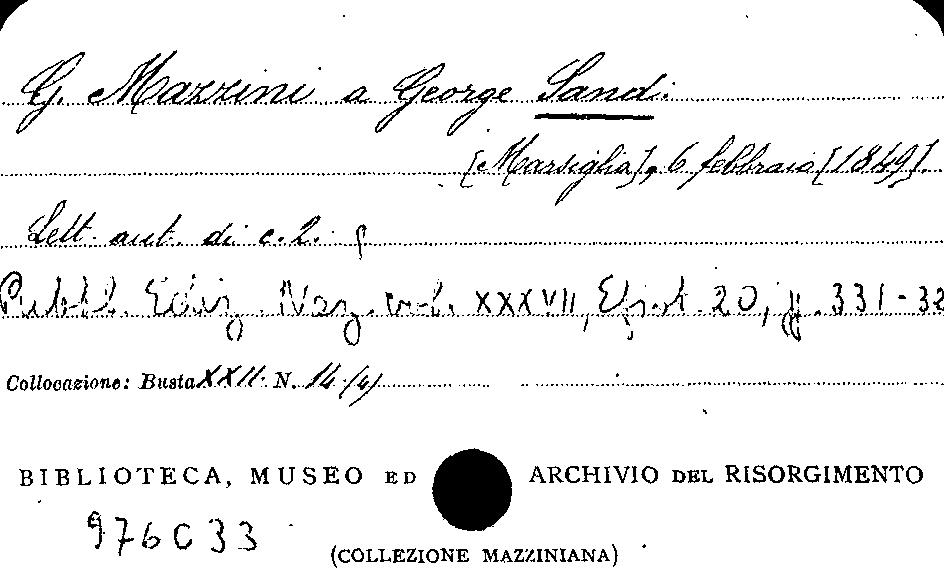 G. Mazzini a George Sand.
[Marsiglia], 6 febbraio [1849].
Lett. aut. di c. 2.
Pubbl. Ediz. Naz. vol. XXXVII, Epist. 20, pp. 331-32
Collocazione: Busta XXII. N. 14 (4)
BIBLIOTECA, MUSEO ED ARCHIVIO DEL RISORGIMENTO
976C33
(COLLEZIONE MAZZINIANA)